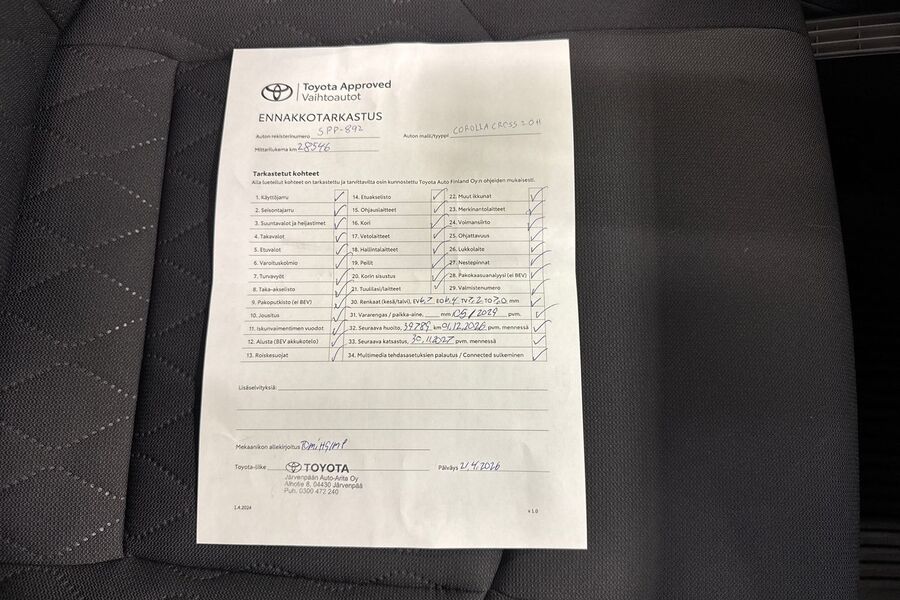 Toyota Approved
Vaihtoautot
ENNAKKOTARKASTUS
Auton rekisterinumero SPP-892 Auton malli/tyyppi COROLLA CROSS 2.0H
Mittarilukema km 28546
Tarkastetut kohteet
Alla luetellut kohteet on tarkastettu ja tarvittavilta osin kunnostettu Toyota Auto Finland Oy:n ohjeiden mukaisesti.
1. Käyttöjarru 14. Etuakselisto 22. Muut ikkunat
2. Seisontajarru 15. Ohjauslaitteet 23. Merkinantolaitteet
3. Suuntavalot ja heijastimet 16. Kori 24. Voimansiirto
4. Takavalot 17. Vetolaitteet 25. Ohjattavuus
5. Etuvalot 18. Hallintalaitteet 26. Lukkolaite
6. Varoituskolmio 19. Peilit 27. Nestepinnat
7. Turvavyöt 20. Korin sisustus 28. Pakokaasuanalyysi (ei BEV)
8. Taka-akselisto 21. Tuulilasi/laitteet 29. Valmistenumero
9. Pakoputkisto (ei BEV) 30. Renkaat (kesä/talvi), EV 6,7 EO 6,4 TV 7,2 TO 7,0 mm
10. Jousitus 31. Vararengas / paikka-aine, mm 105/2029 pvm.
11. Iskunvaimentimien vuodot 32. Seuraava huolto, 39789 km 01.12.2026 pvm. mennessä
12. Alusta (BEV akkukotelo) 33. Seuraava katsastus, 30.11.2027 pvm. mennessä
13. Roiskesuojat 34. Multimedia tehdasasetuksien palautus / Connected sulkeminen
Lisäselvityksiä:
Mekaanikon allekirjoitus
Toyota-liike TOYOTA Päiväys 21,4,2026
Järvenpään Auto-Arita Oy
Alhotie 8, 04430 Järvenpää
Puh. 0300 472 240
1.4.2024 v 1.0